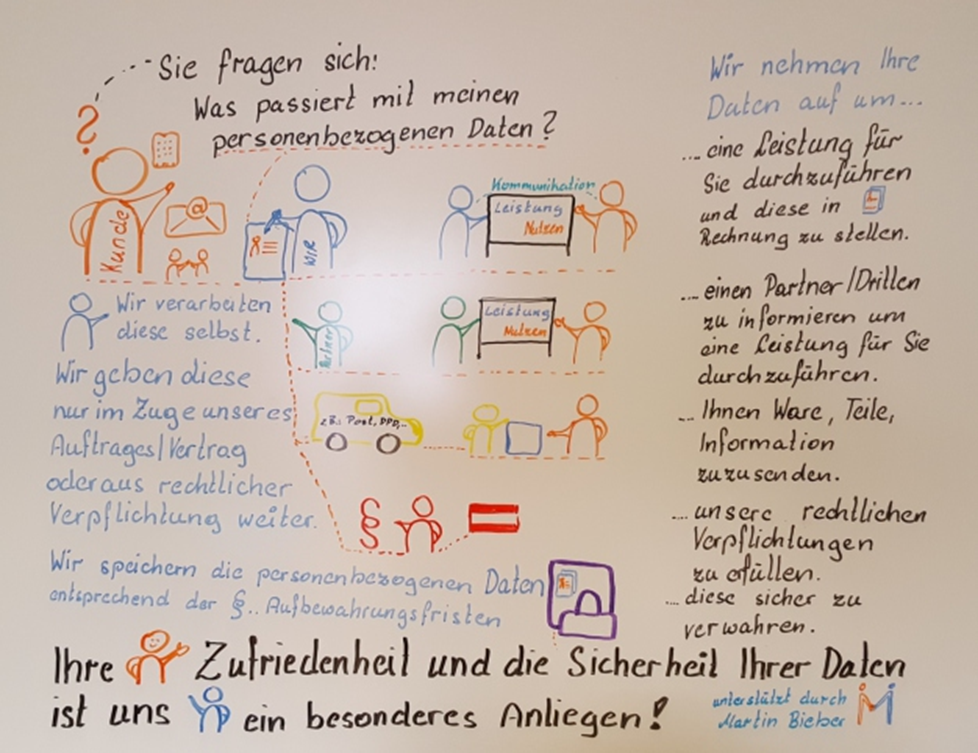 Sie fragen sich:
Was passiert mit meinen
personenbezogenen Daten?
?
Kunde
@
WIR
Kommunikation
Leistung
Nutzen
Wir verarbeiten
diese selbst.
Partner
Leistung
Nutzen
Wir geben diese
nur im Zuge unseres
Auftrages/Vertrag
oder aus rechtlicher
Verpflichtung weiter.
z.B.: Post, DPD,..
§
Wir speichern die personenbezogenen Daten
entsprechend der §.. Aufbewahrungsfristen
Wir nehmen Ihre
Daten auf um...
...eine Leistung für
Sie durchzuführen
und diese in
Rechnung zu stellen.
...einen Partner/Dritten
zu informieren um
eine Leistung für Sie
durchzuführen.
...Ihnen Ware, Teile,
Information
zuzusenden.
...unsere rechtlichen
Verpflichtungen
zu erfüllen.
...diese sicher zu
verwahren.
Ihre Zufriedenheit und die Sicherheit Ihrer Daten
ist uns ein besonderes Anliegen!
unterstützt durch
Martin Bieber